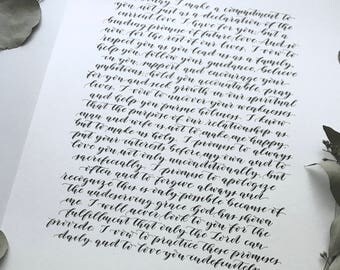 today I make a commitment to
you, not just as a declaration of the
current love I have for you, but a
binding promise of future love. And so
now for the rest of our lives, I vow to
respect you as you lead us as a family,
help you, follow your guidance, believe
in you, support and encourage your
ambitions, hold you accountable, pray
for you and seek growth in our spiritual
lives. I vow to uncover your weaknesses
and help you pursue holiness. I know
that the purpose of our relationship as
man and wife is not to make me happy
but to make us holy. I promise to always
put your interests before my own and to
love you not only unconditionally, but
sacrificially. I promise to apologize
often and to forgive always and
recognize this is only possible because of
the undeserving grace God has shown
me. I will never look to you for the
fulfillment that only the Lord can
provide. I vow to practice these promises
daily and to love you indefinitely.